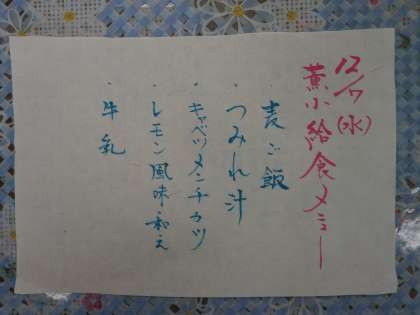 12/17(水)
薫小給食メニュー
・麦ご飯
・つみれ汁
・キャベツメンチカツ
・レモン風味和え
・牛乳